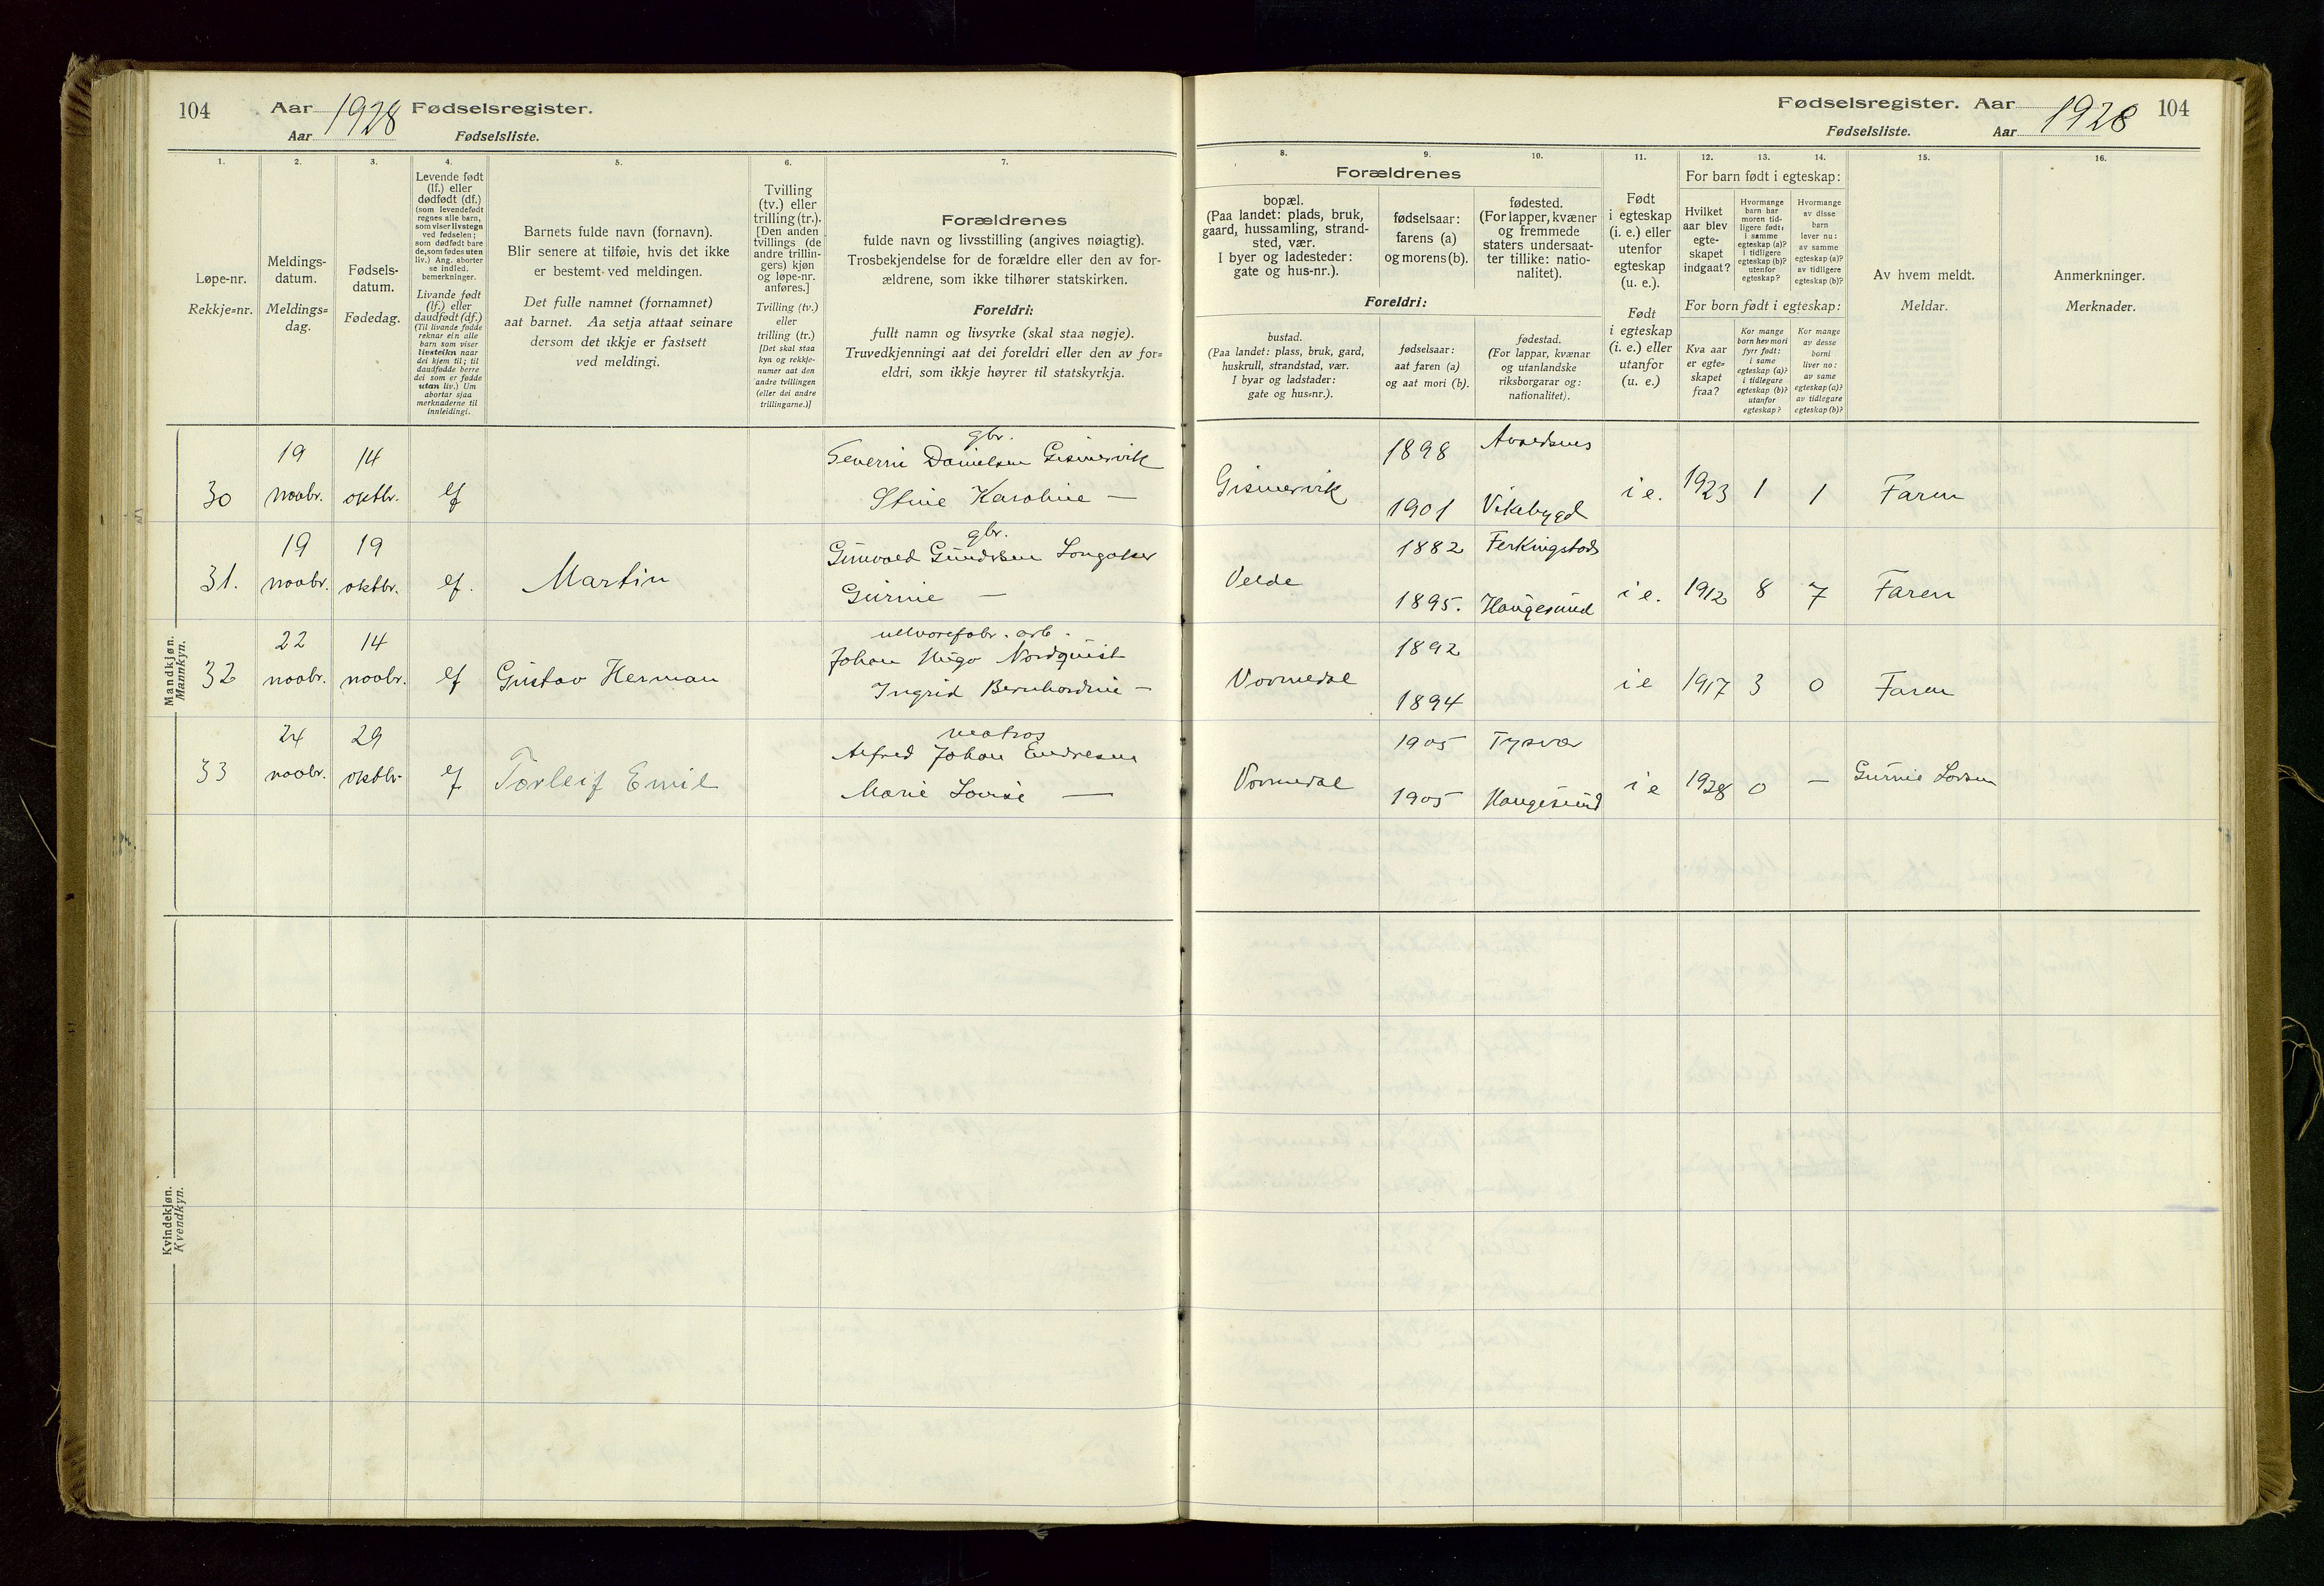 104 Aar 1928 Fødselsregister.
Aar Fødselsliste.
1. 2. 3. 4. 5. 6. 7.
Løpe-nr.
Rekkje=nr.
Meldings-
datum.
Meldings=
dag.
Fødsels-
datum.
Fødedag.
Levende født
(lf.) eller
dødfødt (df.)
(som levendefødt
regnes alle barn,
som viser livstegn
ved fødselen;
som dødfødt bare
de, som fødes uten
liv.) Ang. aborter
se indled.
bemerkninger.
Livande født
(lf.) eller
daudfødt (df.)
(Til livande fødde
reknar ein alle
barn som viser
livsteikn naar
dei kjem til; til
daudfødde berre
dei som er fødde
utan liv.) Um
abortar sjaa
merknaderne til
innleidingi.
Barnets fulde navn (fornavn).
Blir senere at tilføie, hvis det ikke
er bestemt ved meldingen.
Det fulle namnet (fornamnet)
aat barnet. Aa setja attaat seinare
dersom det ikkje er fastsett
ved meldingi.
Tvilling
(tv.) eller
trilling (tr.).
[Den anden
tvillings (de
andre trillin-
gers) kjøn
og løpe-nr.
anføres.]
Tvilling (tv.)
eller
trilling (tr.)
[Det skal staa
kyn og rekkje-
numer aat den
andre tvillingen
(eller dei andre
trillingarne.)]
Forældrenes
fulde navn og livsstilling (angives nøiagtig).
Trosbekjendelse for de forældre eller den av for-
ældrene, som ikke tilhører statskirken.
Foreldri:
fullt namn og livsyrke (skal staa nøgje).
Truvedkjenningi aat dei foreldri eller den av for=
eldri, som ikkje høyrer til statskyrkja.
Mandkjøn.
Mannkyn.
30 19 noobr. 14 oktbr. lf
gbr.
Severin Danielsen Gismervik
Stine Karoline —
31. 19 noobr. 19 oktbr. lf. Martin
gbr.
Gunvald Gundersen
Gurine —
32 22 noobr. 14 noobr. lf Gustav Herman
Johan Hugo Nordquist
Ingrid Bernhardine —
33 24 noobr. 29 oktbr. lf Torleif Emil
matros
Alfred Johan Endresen
Marie Lovise —
Kvindekjøn.
Kvendkyn.
Fødselsregister. Aar 1928 104
Fødselsliste. Aar
8. 9. 10. 11. 12. 13. 14. 15. 16.
Forældrenes
bopæl.
(Paa landet: plads, bruk,
gaard, hussamling, strand-
sted, vær.
I byer og ladesteder:
gate og hus-nr.).
fødselsaar:
farens (a)
og morens (b).
fødested.
(For lapper, kvæner
og fremmede
staters undersaat-
ter tillike: natio-
nalitet).
Foreldri:
bustad.
(Paa landet: plass, bruk, gard,
huskrull, strandstad, vær.
I byar og ladstader:
gate og hus=nr.).
fødselsaar:
aat faren (a)
og aat mori (b).
fødestad.
(For lappar, kvænar
og utanlandske
riksborgarar og:
nationalitet).
Født
i egteskap
(i. e.) eller
utenfor
egteskap
(u. e.).
Født
i egteskap
(i. e.) eller
utanfor
(u. e.)
For barn født i egteskap:
Hvilket
aar blev
egte-
skapet
indgaat?
Hvormange
barn har
moren tid-
ligere født:
i samme
egteskap (a)?
i tidligere
egteskap (b)?
utenfor
egteskap?
Hvormange
av disse
barn
lever nu:
av samme
egteskap (a)?
av tidligere
egteskap (b)?
For born født i egteskap:
Kva aar
er egte-
skapet
fraa?
Kor mange
born hev mori
fyrr født:
i same
egteskap (a)?
i tidlegare
egteskap (b)?
utanfor
egteskap?
Kor mange
av desse
borni
liver no:
av same
egteskap (a)?
av tidlegare
egteskap (b)?
Av hvem meldt.
Meldar.
Anmerkninger.
Merknader.
Gismervik 1898 Avaldsnes
1901 Vikebygd i e. 1923 1 1 Faren
Velde 1882 Ferkingstad
1895. Haugesund i e. 1912 8 7 Faren
Vormedal 1892
1894 i e 1917 3 0 Faren
Vormedal 1905 Tysvær
1905 Haugesund i e 1928 0 — Gurine Lodsen